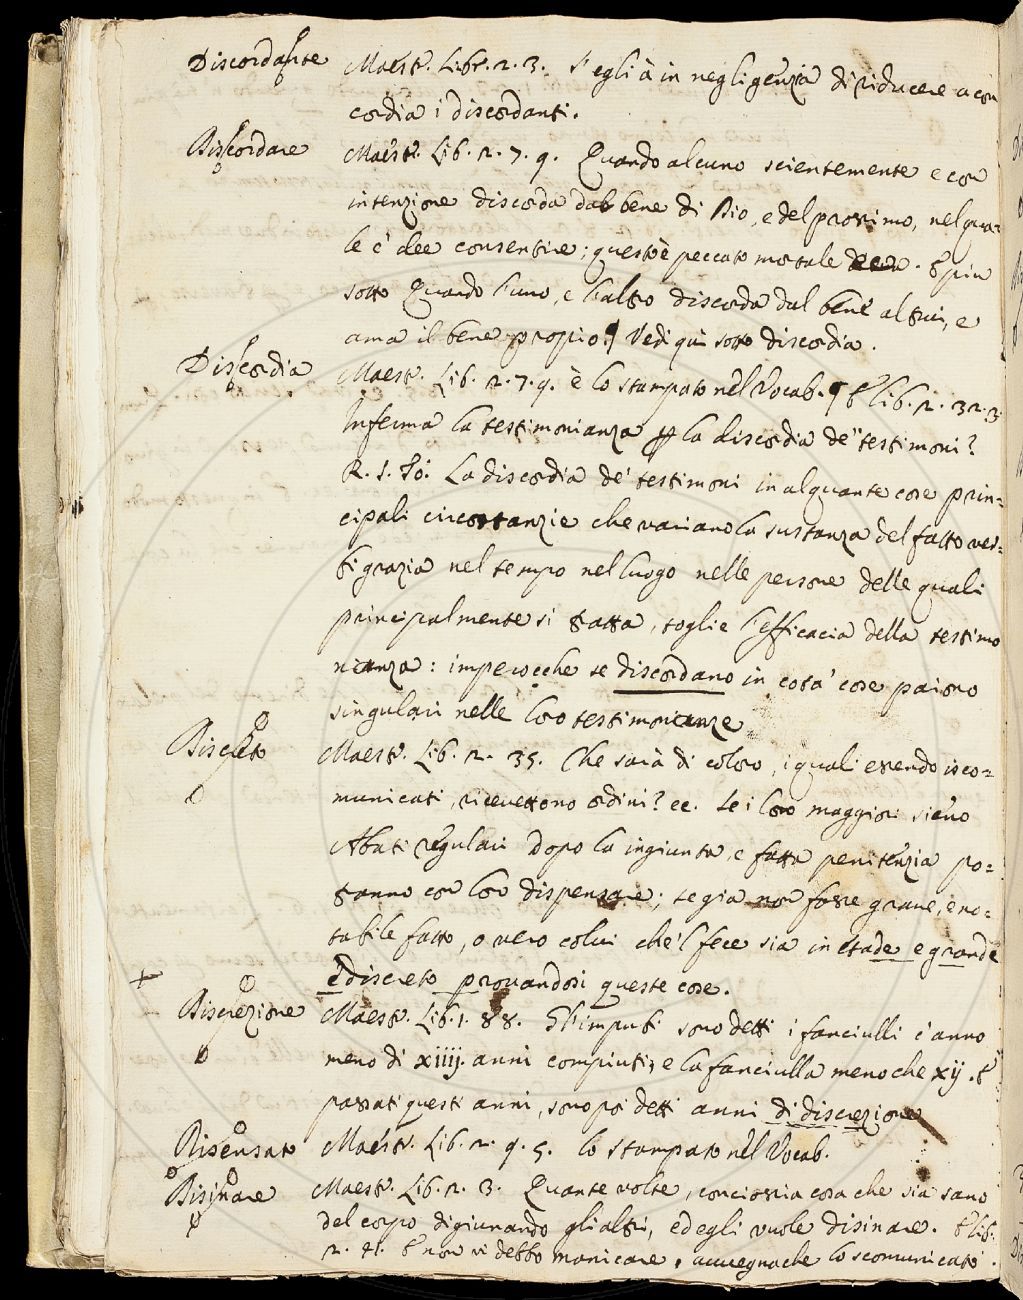 Discordante Maestr. Libr. 2. 3. S'egli à in negligenzia di riducere a con
cordia i discordanti.
Discordare Maestr. Lib. 2. 7. 9. Quando alcuno scientemente e con
intenzione discorda dal bene di Dio, e del prossimo, nel qua-
le e' dee consentire; questo è peccato mortale. E piu
sotto Quando l'uno, e l'altro discorda dal bene altrui, e
ama il bene propio. Vedi qui sotto discordia.
Discordia Maestr. Lib. 2. 7. 9. è lo stampato nel Vocab. E lib. 2. 32. 3.
Inferma la testimonianza la discordia de' testimoni?
R. S. Tò. La discordia de' testimoni in alquante cose prin=
cipali circostanzie che variano la sustanza del fatto ver=
bigrazia nel tempo nel luogo nelle persone delle quali
principalmente si tratta, toglie l'efficacia della testimo
nianza: imperocche se discordano in cota' cose paiono
singulari nelle loro testimonianze
Discreto Maestr. Lib. 2. 35. Che sarà di coloro, i quali essendo isco=
municati, ricevettono ordini? ec. Se i loro maggiori sieno
Abati regulari dopo la ingiunta, e fatta penitenzia po=
tranno con loro dispensare; se gia non fosse grave, e no=
tabile fatto, o vero colui che 'l fece sia in etade e grande
e discreto provandosi queste cose.
Discrezione Maestr. Lib. 1. 88. Gl'impubi sono detti i fanciulli c'anno
meno di xiiij. anni compiuti, e la fanciulla meno che xij. E
passati questi anni, sono poi detti anni di discrezione
Disensato Maestr. Lib. 2. 9. 5. lo stampato nel Vocab.
Disinare Maestr. Lib. 2. 3. Quante volte, conciossia cosa che sia sano
del corpo digiunando gli altri, ed egli vuole disinare. E lib.
2. 41. E non vi debbo manicare, avvegnache lo scomunicato